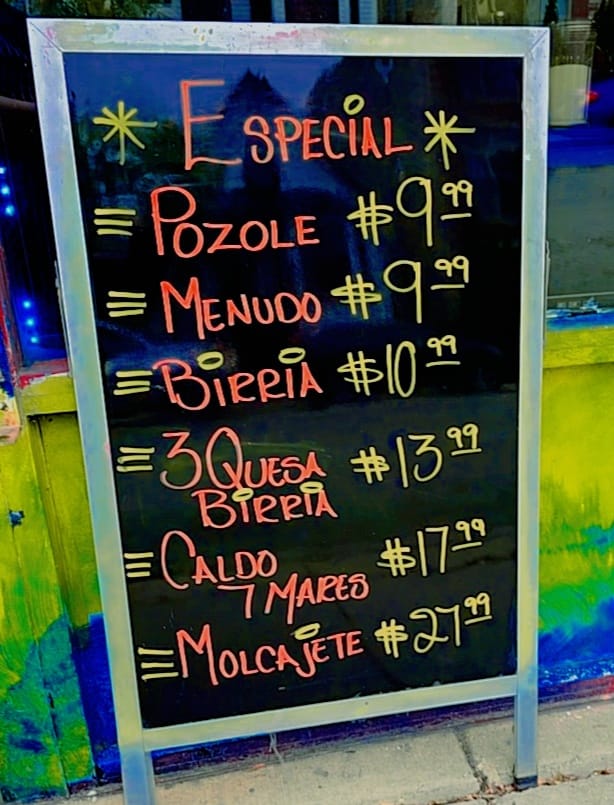 * ESPECIAL *
≡ POZOLE $9.99
≡ MENUDO $9.99
≡ BIRRIA $10.99
≡ 3 QUESA $13.99
BIRRIA
≡ CALDO $17.99
7 MARES
≡ MOLCAJETE $27.99